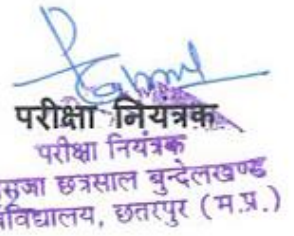 परीक्षा नियंत्रक
परीक्षा नियंत्रक
छत्रसाल बुन्देलखण्ड
छतरपुर (म.प्र.)